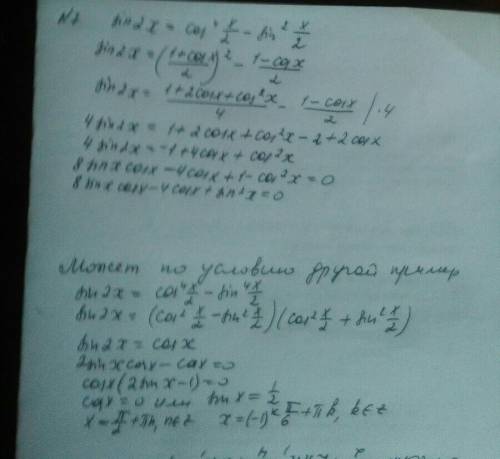 N1 sin2x = cos⁴ x/2 - sin² x/2
sin2x = ((1+cosx)/2)² - (1-cosx)/2
sin2x = (1+2cosx+cos²x)/4 - (1-cosx)/2 / ·4
4sin2x = 1+2cosx+cos²x-2+2cosx
4sin2x = -1+4cosx+cos²x
8sinxcosx-4cosx+1-cos²x=0
8sinxcosx-4cosx+sin²x=0
Может по условию другой пример
sin2x = cos⁴ x/2 - sin⁴ x/2
sin2x = (cos² x/2 - sin² x/2)(cos² x/2 + sin² x/2)
sin2x = cosx
2sinxcosx-cosx=0
cosx(2sinx-1)=0
cosx=0 или sinx=1/2
x=π/2+πn, n∈z x=(-1)ᵏ π/6+πk, k∈z